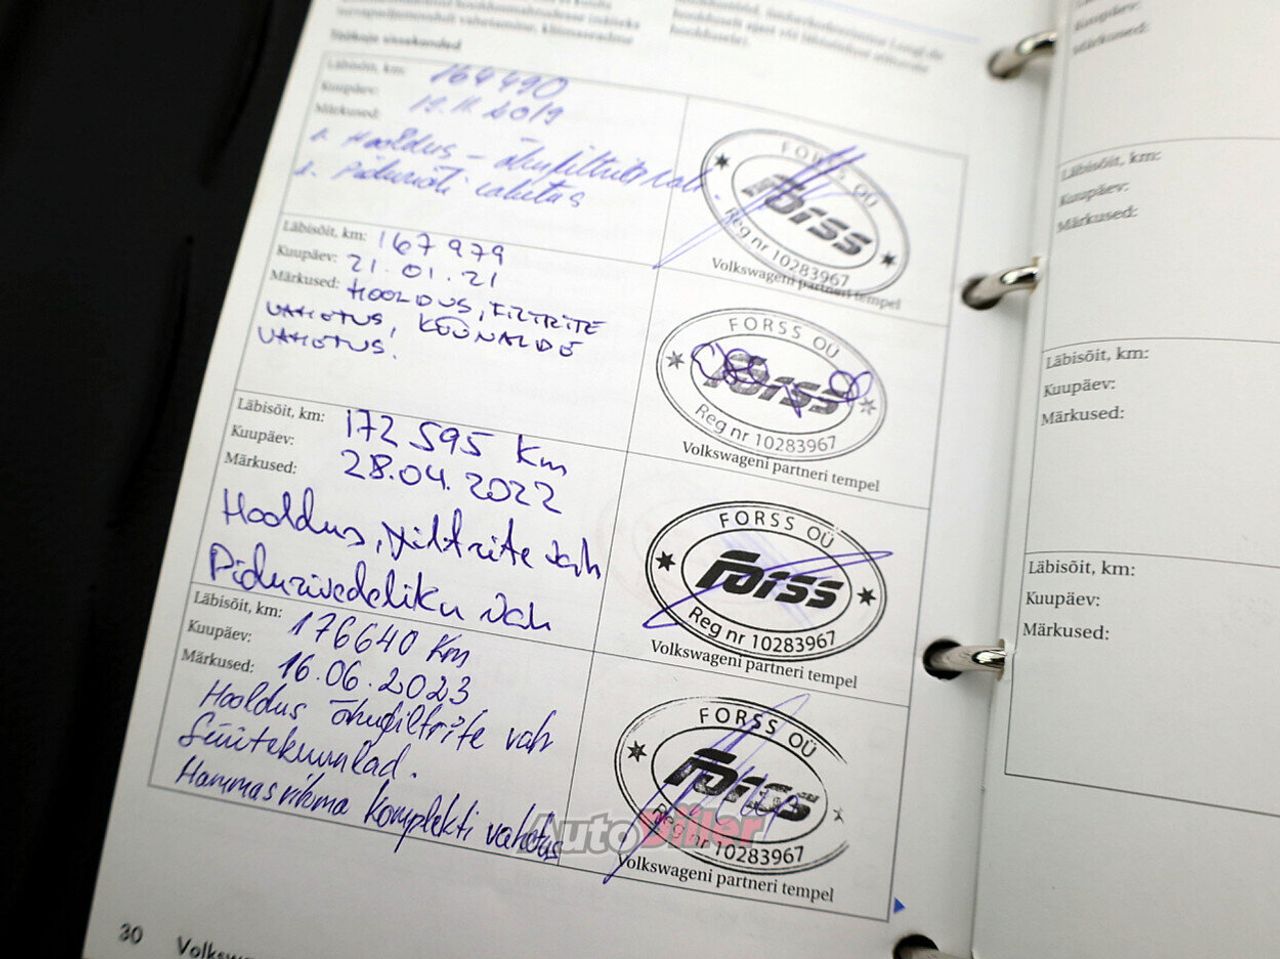 Töökoja sissekanded
Läbisõit, km: 164490
Kuupäev: 19.11.2019
Märkused:
1. Hooldus – õhufiltrite vah.
2. Piduriõli vahetus
FORSS OÜ
Forss
Reg nr 10283967
Volkswageni partneri tempel
Läbisõit, km: 167979
Kuupäev: 21.01.21
Märkused: HOOLDUS, FILTRITE
VAHETUS, KÜÜNALDE
VAHETUS.
FORSS OÜ
Forss
Reg nr 10283967
Volkswageni partneri tempel
Läbisõit, km: 172 595 Km
Kuupäev: 28.04.2022
Märkused:
Hooldus, filtrite vah
Pidurivedeliku vah
FORSS OÜ
Forss
Reg nr 10283967
Volkswageni partneri tempel
Läbisõit, km: 176640 Km
Kuupäev: 16.06.2023
Märkused:
Hooldus õhufiltrite vah
Süüteküünlad.
Hammasrihma komplekti vahetus
FORSS OÜ
Forss
Reg nr 10283967
Volkswageni partneri tempel
AutoDiiler
30
Kuupäev:
Märkused:
Läbisõit, km:
Kuupäev:
Märkused:
Läbisõit, km:
Kuupäev:
Märkused:
Läbisõit, km:
Kuupäev:
Märkused: